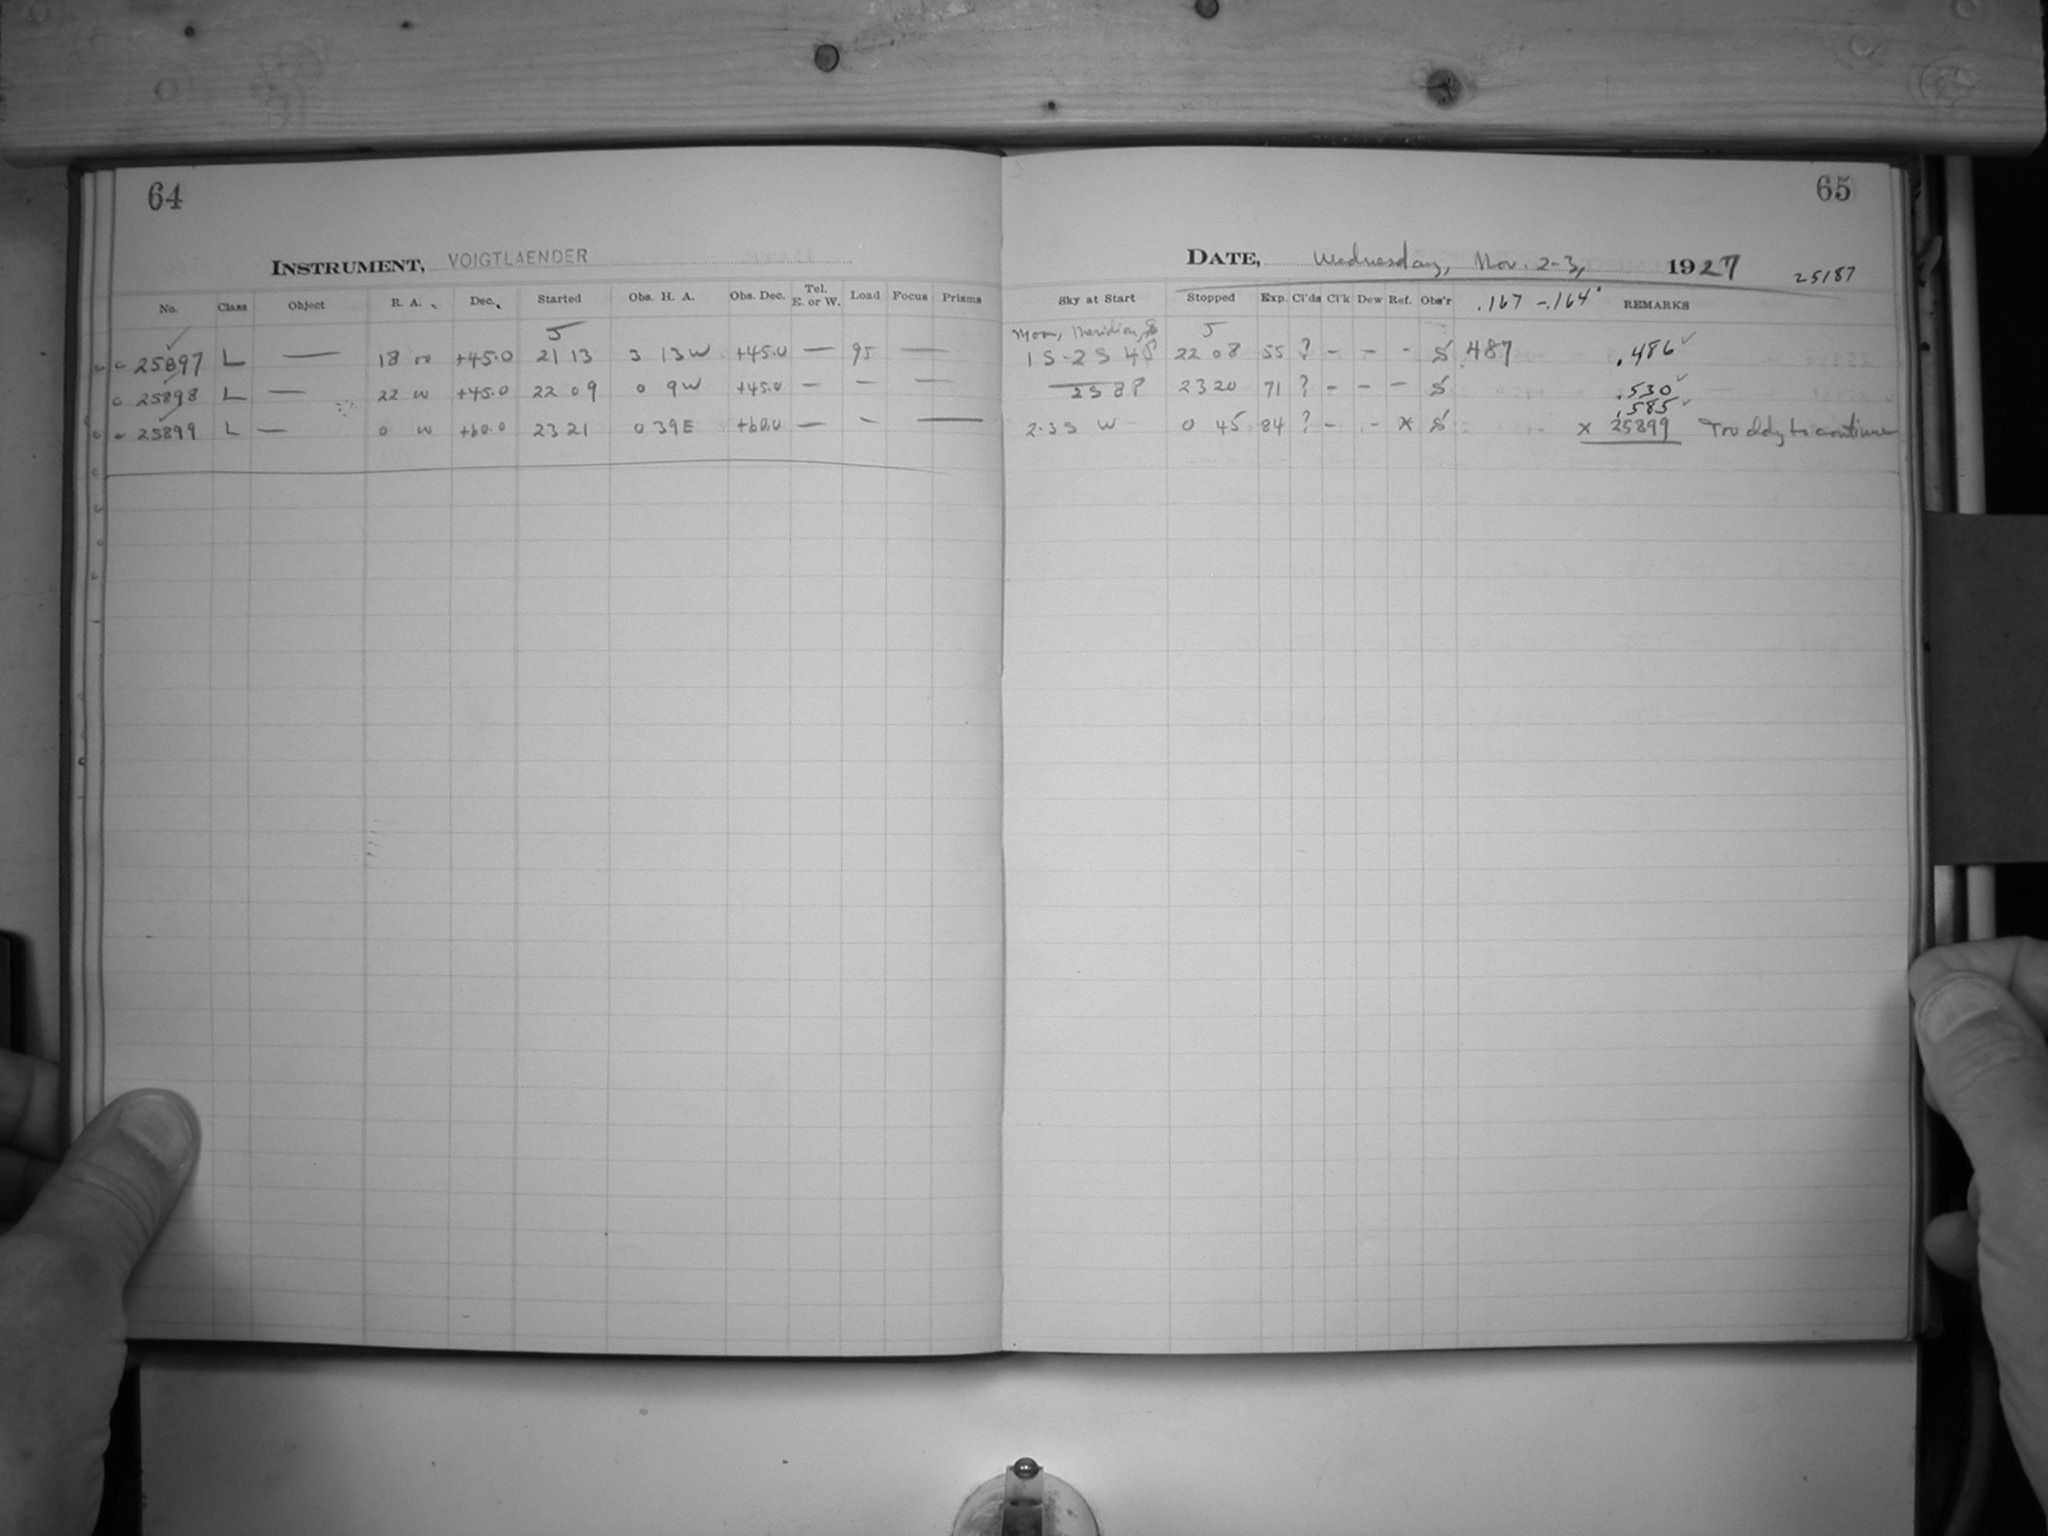 64
INSTRUMENT, VOIGTLAENDER
No. Class Object R. A. Dec. Started Obs. H. A. Obs. Dec. Tel. E. or W. Load Focus Prisms
5
25897 L — 18 w +45.0 21 13 3 13W +45.0 — 95 —
25898 L — 22 w +45.0 22 09 0 9W +45.0 — – —
25899 L — 0 w +60.0 23 21 0 39E +60.0 — – —
65
DATE, Wednesday, Nov. 2-3, 1927
25187
Sky at Start Stopped Exp. Cl'ds Cl'k Dew Ref. Obs'r .167 -.164 REMARKS
Moon, Meridian, 5
1S-2S 4P 22 08 55 ? – – - S .487 .486
2S 8P 23 20 71 ? – – – S .530
.585
2-3S W 0 45 84 ? – – x S x 25899 Too cldy to continue